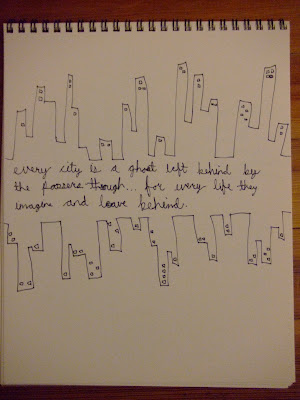 every city is a ghost left behind by
the passers through... for every life they
imagine and leave behind.